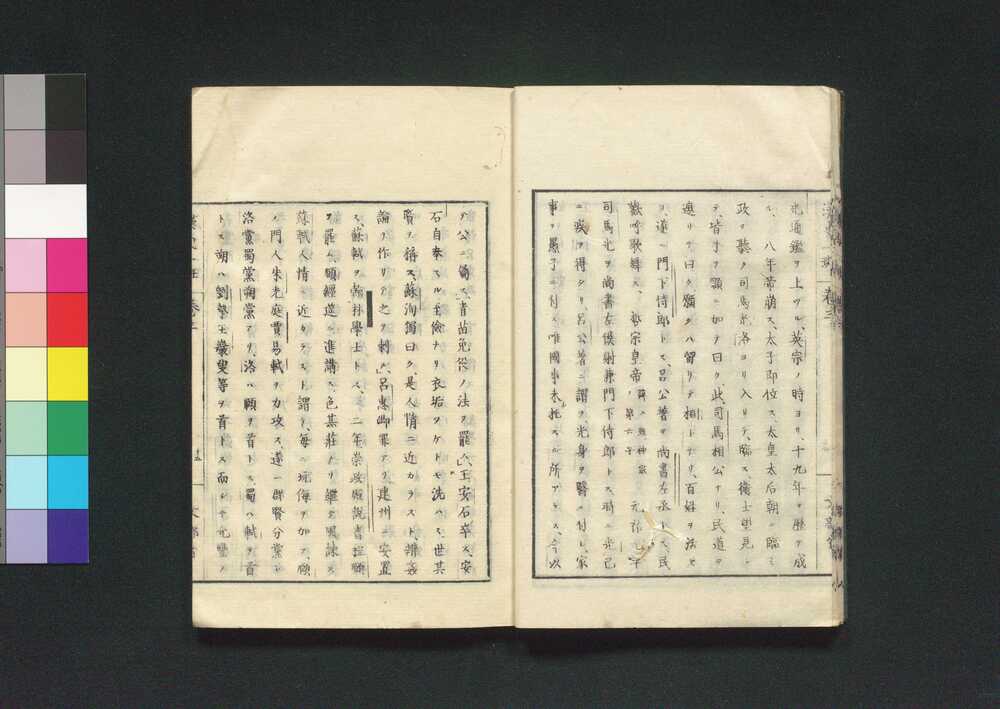 光通鑑ヲ上ツル、英宗ノ時ヨリ、十九年ヲ歴テ成
ル、八年帝崩ス、太子即位ス、太皇太后朝ニ臨ミ
政ヲ聽ク司馬光洛ヨリ入リテ、臨ス衛士望見シ
テ、皆手ヲ額ニ加ヘテ曰ク、此司馬相公ナリ、民道ヲ
遮リテ曰ク願クハ留リテ相トナリ、百姓ヲ活セ
ヨ、遂ニ門下侍郎トス、呂公著ヲ尚書左丞トス、民
歡呼歌舞ス、哲宗皇帝
司馬光ヲ尚書左僕射兼門下侍郎トス、時ニ光已
ニ疾ヲ得タリ呂公著ニ謂フ光身ヲ醫ニ付シ、家
事ヲ愚子ニ付ス唯國事未托スル所アラス、今以
テ公ニ屬ス、青苗免役ノ法ヲ罷ム、王安石卒ス、安
石自奉スル至儉ナリ衣垢ヲケトモ洗ハス、世其
賢ヲ稱ス、蘇洵獨曰ク、是人情ニ近カラスト、辨姦
論ヲ作リテ之ヲ刺ル、呂惠卿罪アリ、建州ニ安置
ス、蘇軾ヲ翰林學士トス、二年崇政殿説書程頤
ヲ罷ム、頤經筵ニ進講ス、色甚莊ナリ、繼クニ諷諫ス
蘇軾人情ニ近カラスト謂テ、毎ニ玩侮ヲ加フ、頤
ノ門人朱光庭賈易軾ヲ力攻ス、遂ニ群賢分黨シ
洛黨蜀黨朔黨アリ、洛ハ頤ヲ首トス、蜀ハ軾ヲ首
トス、朔ハ劉摯王巖叟等ヲ首トス、而シテ元豐ノ